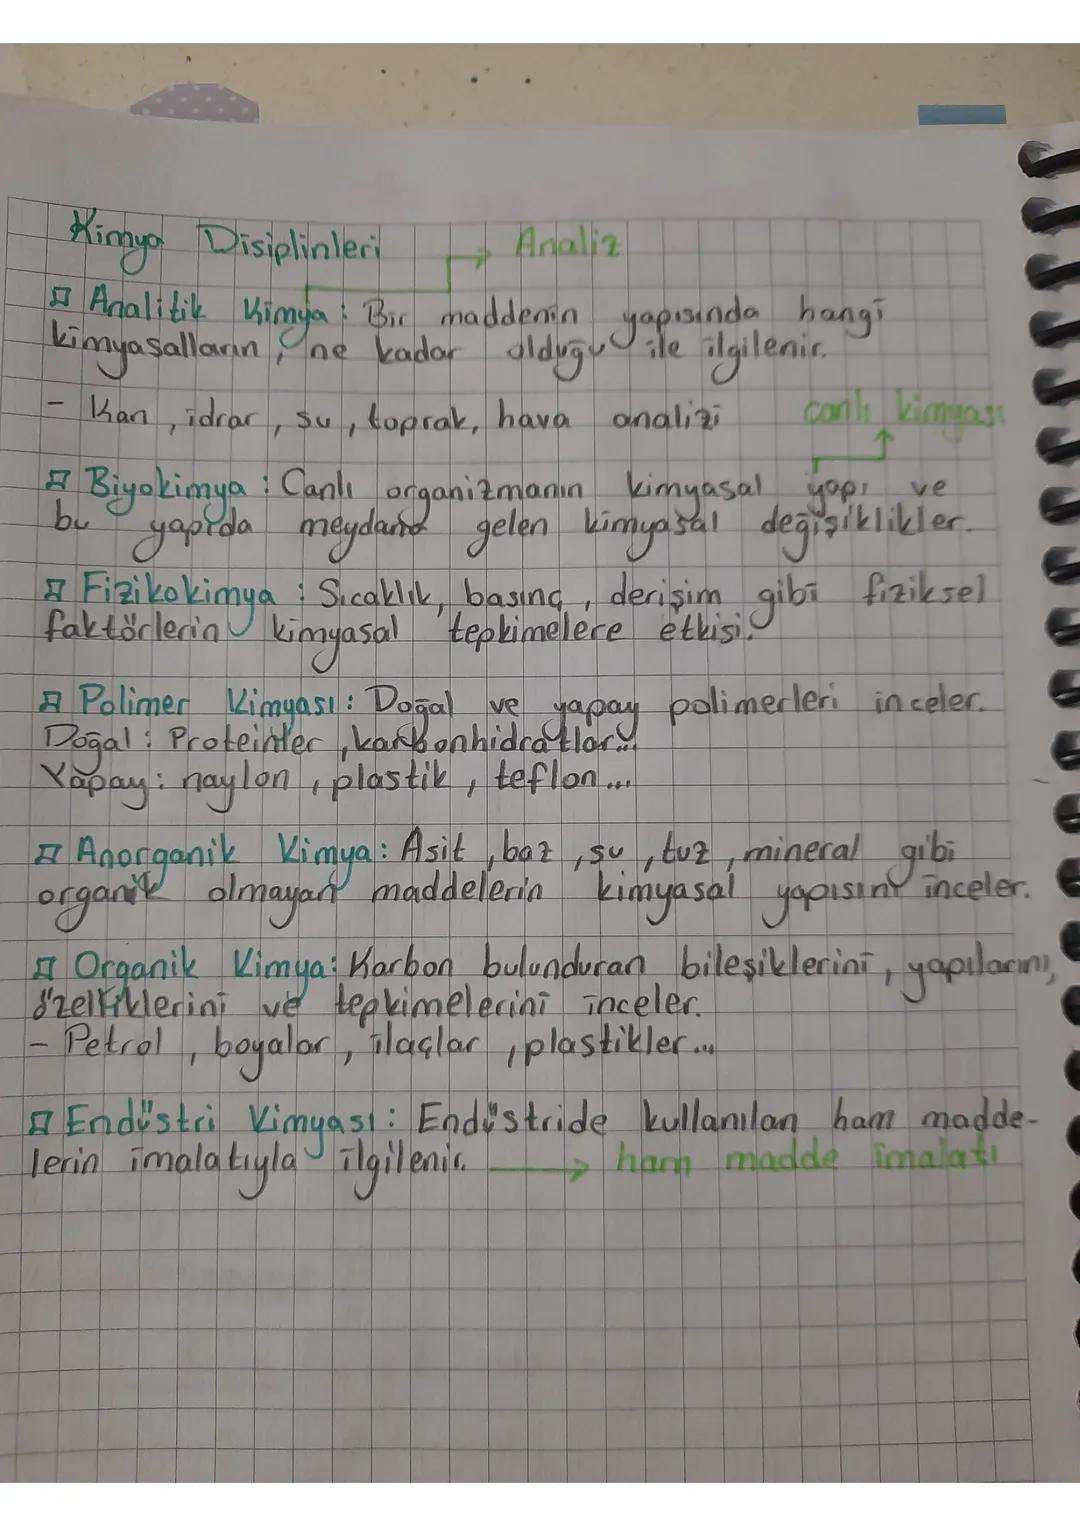 Kimya Disiplinleri → Analiz
Analitik Kimya : Bir maddenin yapısında hangi
kimyasalların, ne kadar olduğu ile ilgilenir.
- Kan, idrar, su, toprak, hava analizi
canlı kimyası
Biyokimya : Canlı organizmanın kimyasal yapı ve
bu yapıda meydana gelen kimyasal değişiklikler.
Fizikokimya : Sıcaklık, basınç, derişim gibi fiziksel
faktörlerin kimyasal tepkimelere etkisi.
Polimer Kimyası : Doğal ve yapay polimerleri inceler.
Doğal : Proteinler, karbonhidratlar...
Yapay : naylon, plastik, teflon...
Anorganik Kimya : Asit, baz, su, tuz, mineral gibi
organik olmayan maddelerin kimyasal yapısını inceler.
Organik Kimya : Karbon bulunduran bileşiklerini, yapılarını,
özelliklerini ve tepkimelerini inceler.
- Petrol, boyalar, ilaçlar, plastikler...
Endüstri Kimyası : Endüstride kullanılan ham madde-
lerin imalatıyla ilgilenir. → ham madde imalatı